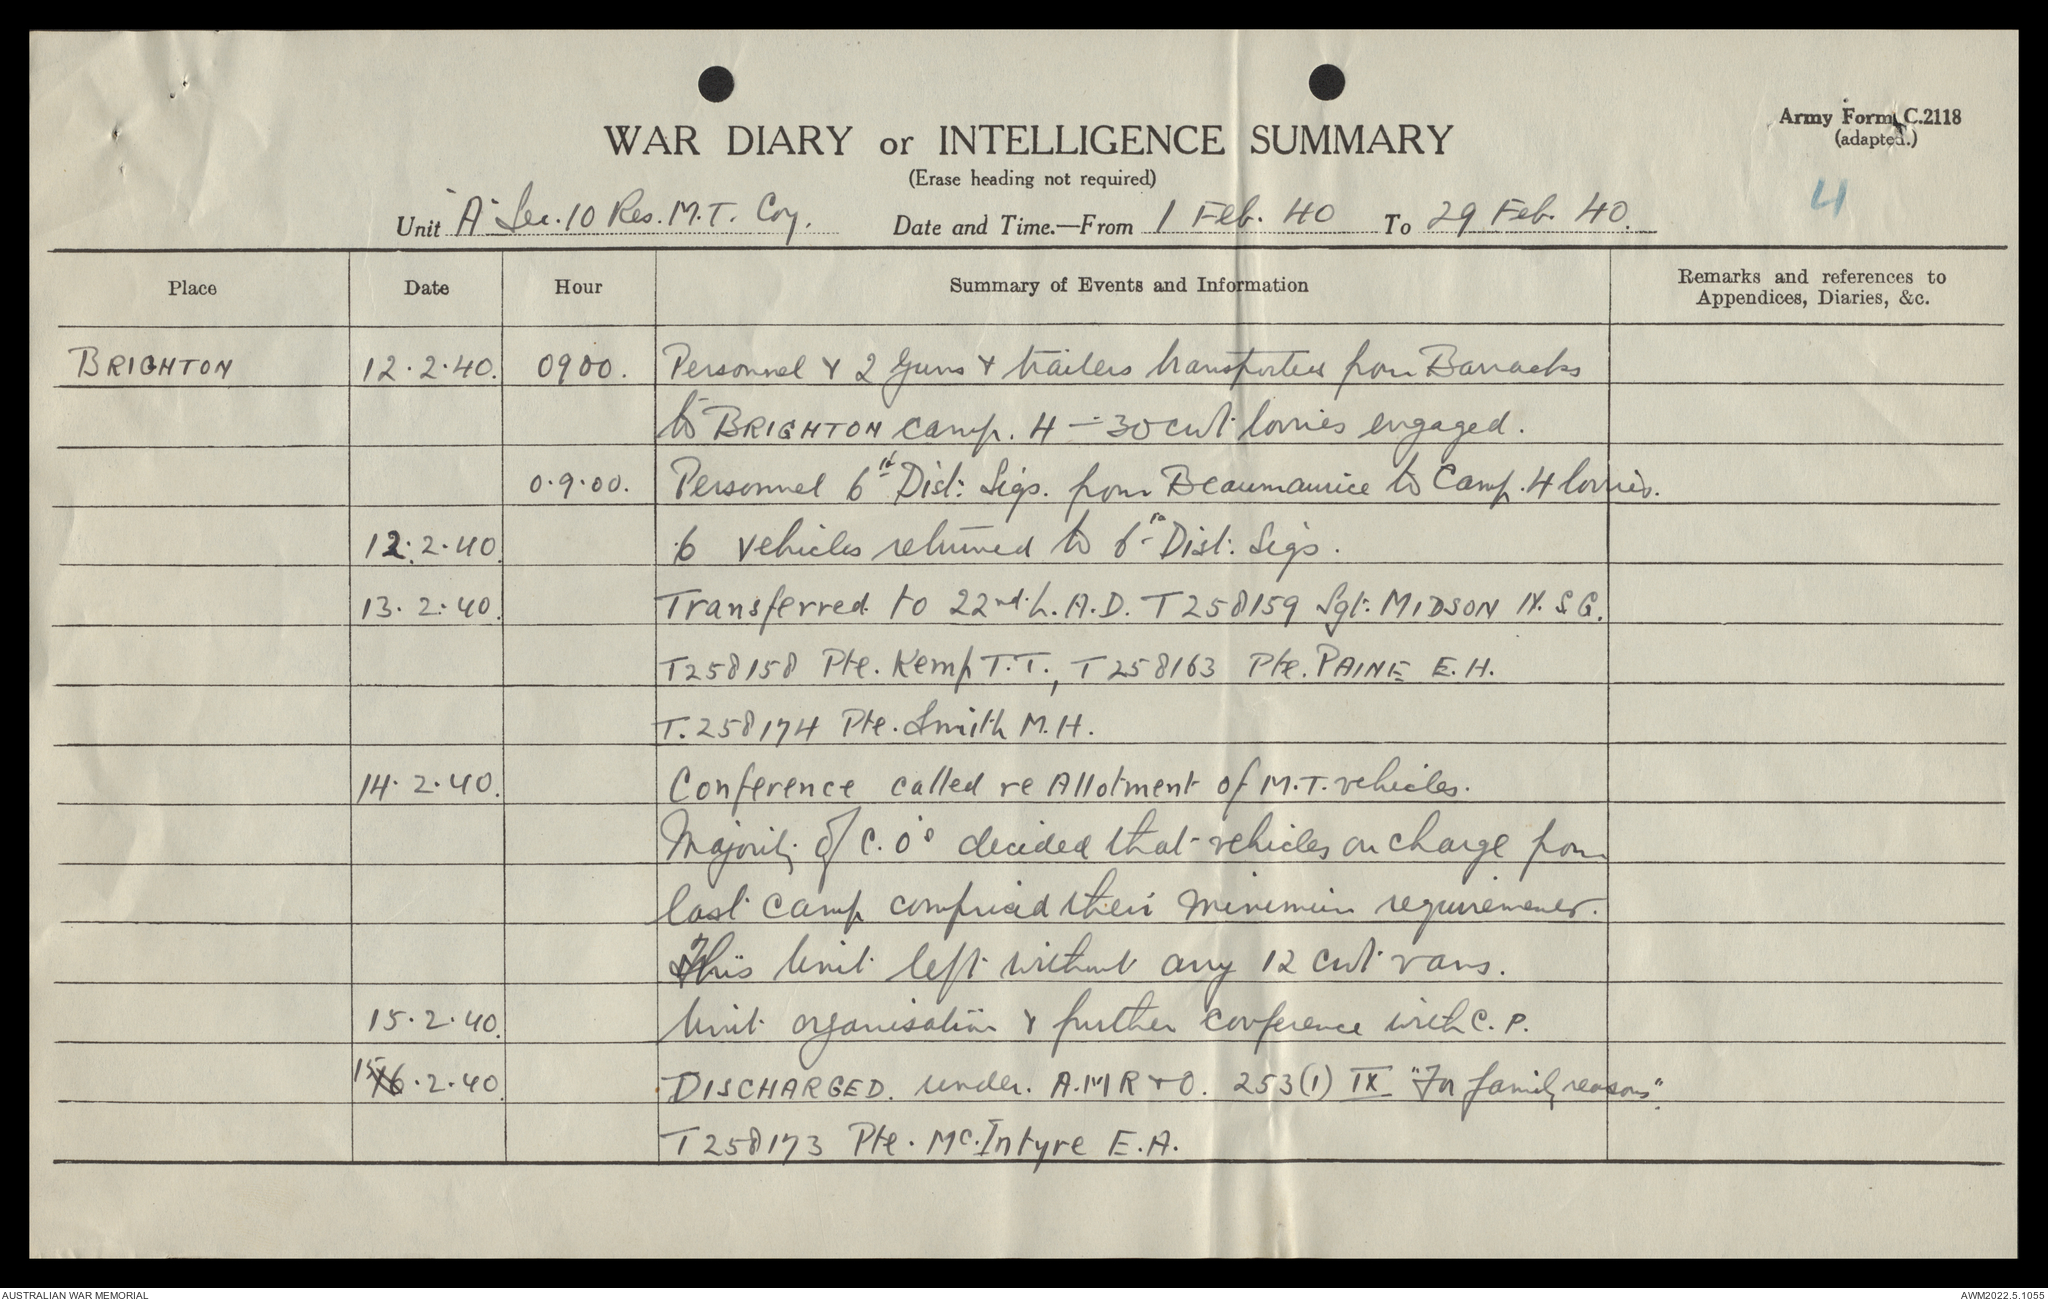 WAR DIARY or INTELLIGENCE SUMMARY
(Erase heading not required)
Army Form C.2118
(adapted.)
4
Unit "A" Sec. 10 Res. M.T. Coy. Date and Time.—From 1 Feb. 40 To 29 Feb. 40.
Place Date Hour Summary of Events and Information Remarks and references to
Appendices, Diaries, &c.
BRIGHTON 12.2.40. 0900. Personnel & 2 Guns & trailers transported from Barracks
to BRIGHTON camp. 4 - 30 cwt lorries engaged.
0.9.00. Personnel 6th Dist: Sigs. from Beaumaurice to Camp. 4 lorries.
12.2.40. 6 vehicles returned to 6th Dist: Sigs.
13.2.40. Transferred to 22nd L.A.D. T258159 Sgt. MIDSON N.S.G.
T258158 Pte. Kemp T.T., T258163 Pte. PAINE E.H.
T.258174 Pte. Smith M.H.
14.2.40. Conference called re Allotment of M.T. vehicles.
Majority of C.O's decided that vehicles on charge from
last camp comprised their minimum requirements.
This Unit left without any 12 cwt vans.
15.2.40. Unit organisation & further conference with C.P.
15.2.40. DISCHARGED. under. A.M R & O. 253(1) IX "For family reasons".
T258173 Pte. Mc.Intyre E.A.
AUSTRALIAN WAR MEMORIAL AWM2022.5.1055